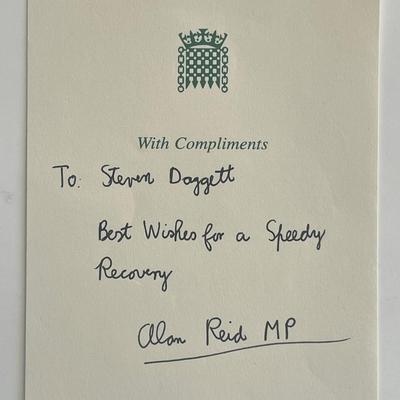 With Compliments
To: Steven Doggett
Best Wishes for a Speedy
Recovery
Alan Reid MP